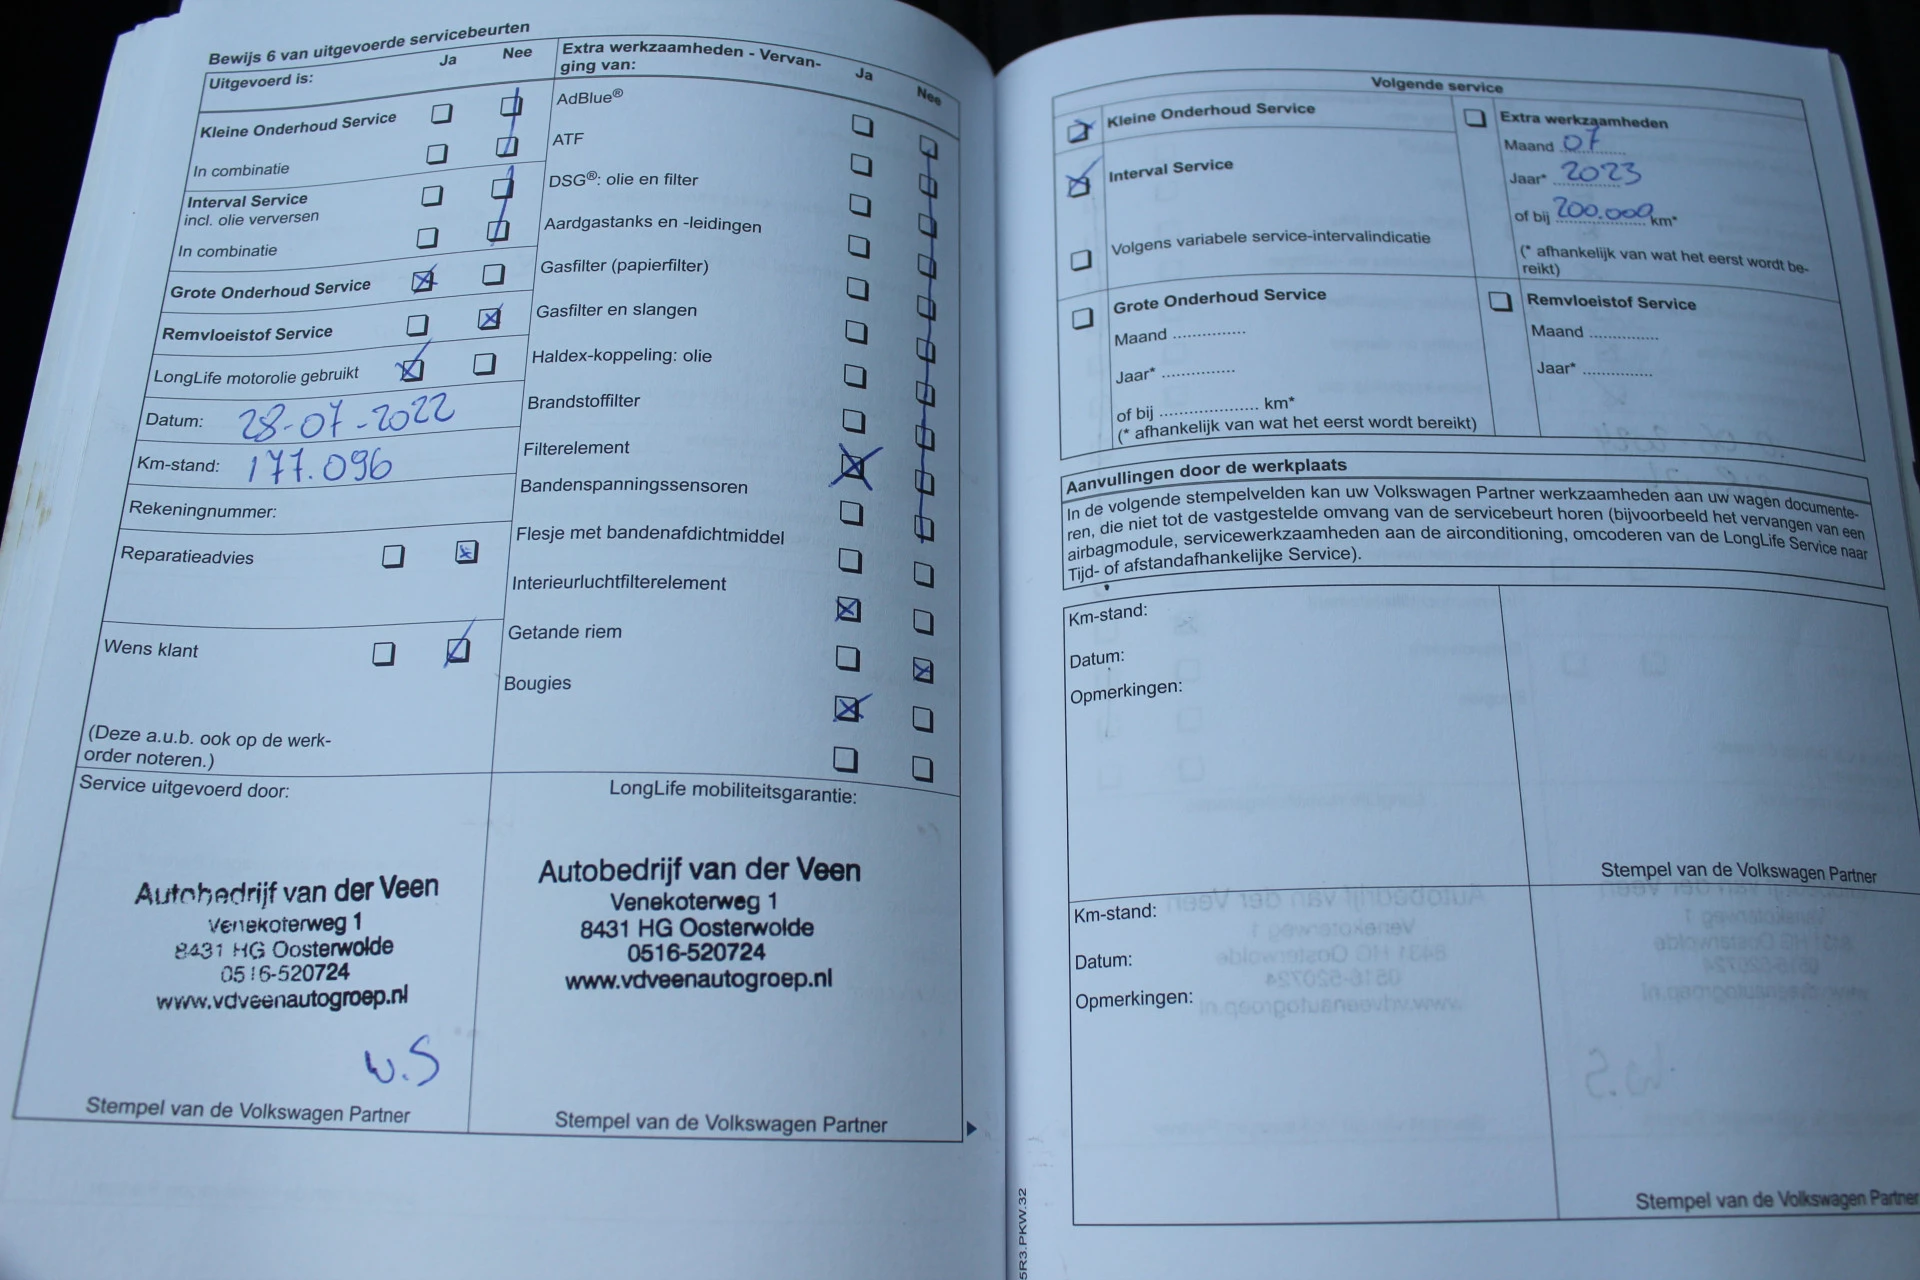 Bewijs 6 van uitgevoerde servicebeurten
Uitgevoerd is:
Ja
Nee
Kleine Onderhoud Service
In combinatie
Interval Service
incl. olie verversen
In combinatie
Grote Onderhoud Service
Remvloeistof Service
LongLife motorolie gebruikt
Datum: 28-07-2022
Km-stand: 177.096
Rekeningnummer:
Reparatieadvies
Wens klant
(Deze a.u.b. ook op de werk-
order noteren.)
Extra werkzaamheden - Vervan-
ging van:
Ja
Nee
AdBlue®
ATF
DSG®: olie en filter
Aardgastanks en -leidingen
Gasfilter (papierfilter)
Gasfilter en slangen
Haldex-koppeling: olie
Brandstoffilter
Filterelement
Bandenspanningssensoren
Flesje met bandenafdichtmiddel
Interieurluchtfilterelement
Getande riem
Bougies
Service uitgevoerd door:
Autobedrijf van der Veen
Venekoterweg 1
8431 HG Oosterwolde
0516-520724
www.vdveenautogroep.nl
W.S
Stempel van de Volkswagen Partner
LongLife mobiliteitsgarantie:
Autobedrijf van der Veen
Venekoterweg 1
8431 HG Oosterwolde
0516-520724
www.vdveenautogroep.nl
Stempel van de Volkswagen Partner
Volgende service
Kleine Onderhoud Service
Interval Service
Volgens variabele service-intervalindicatie
Extra werkzaamheden
Maand 07
Jaar* 2023
of bij 200.000 km*
(* afhankelijk van wat het eerst wordt be-
reikt)
Grote Onderhoud Service
Maand ..............
Jaar* ..............
of bij ................... km*
(* afhankelijk van wat het eerst wordt bereikt)
Remvloeistof Service
Maand .............
Jaar* .............
Aanvullingen door de werkplaats
In de volgende stempelvelden kan uw Volkswagen Partner werkzaamheden aan uw wagen documente-
ren, die niet tot de vastgestelde omvang van de servicebeurt horen (bijvoorbeeld het vervangen van een
airbagmodule, servicewerkzaamheden aan de airconditioning, omcoderen van de LongLife Service naar
Tijd- of afstandafhankelijke Service).
Km-stand:
Datum:
Opmerkingen:
Stempel van de Volkswagen Partner
Km-stand:
Datum:
Opmerkingen:
Stempel van de Volkswagen Partner
5R3.PKW.32